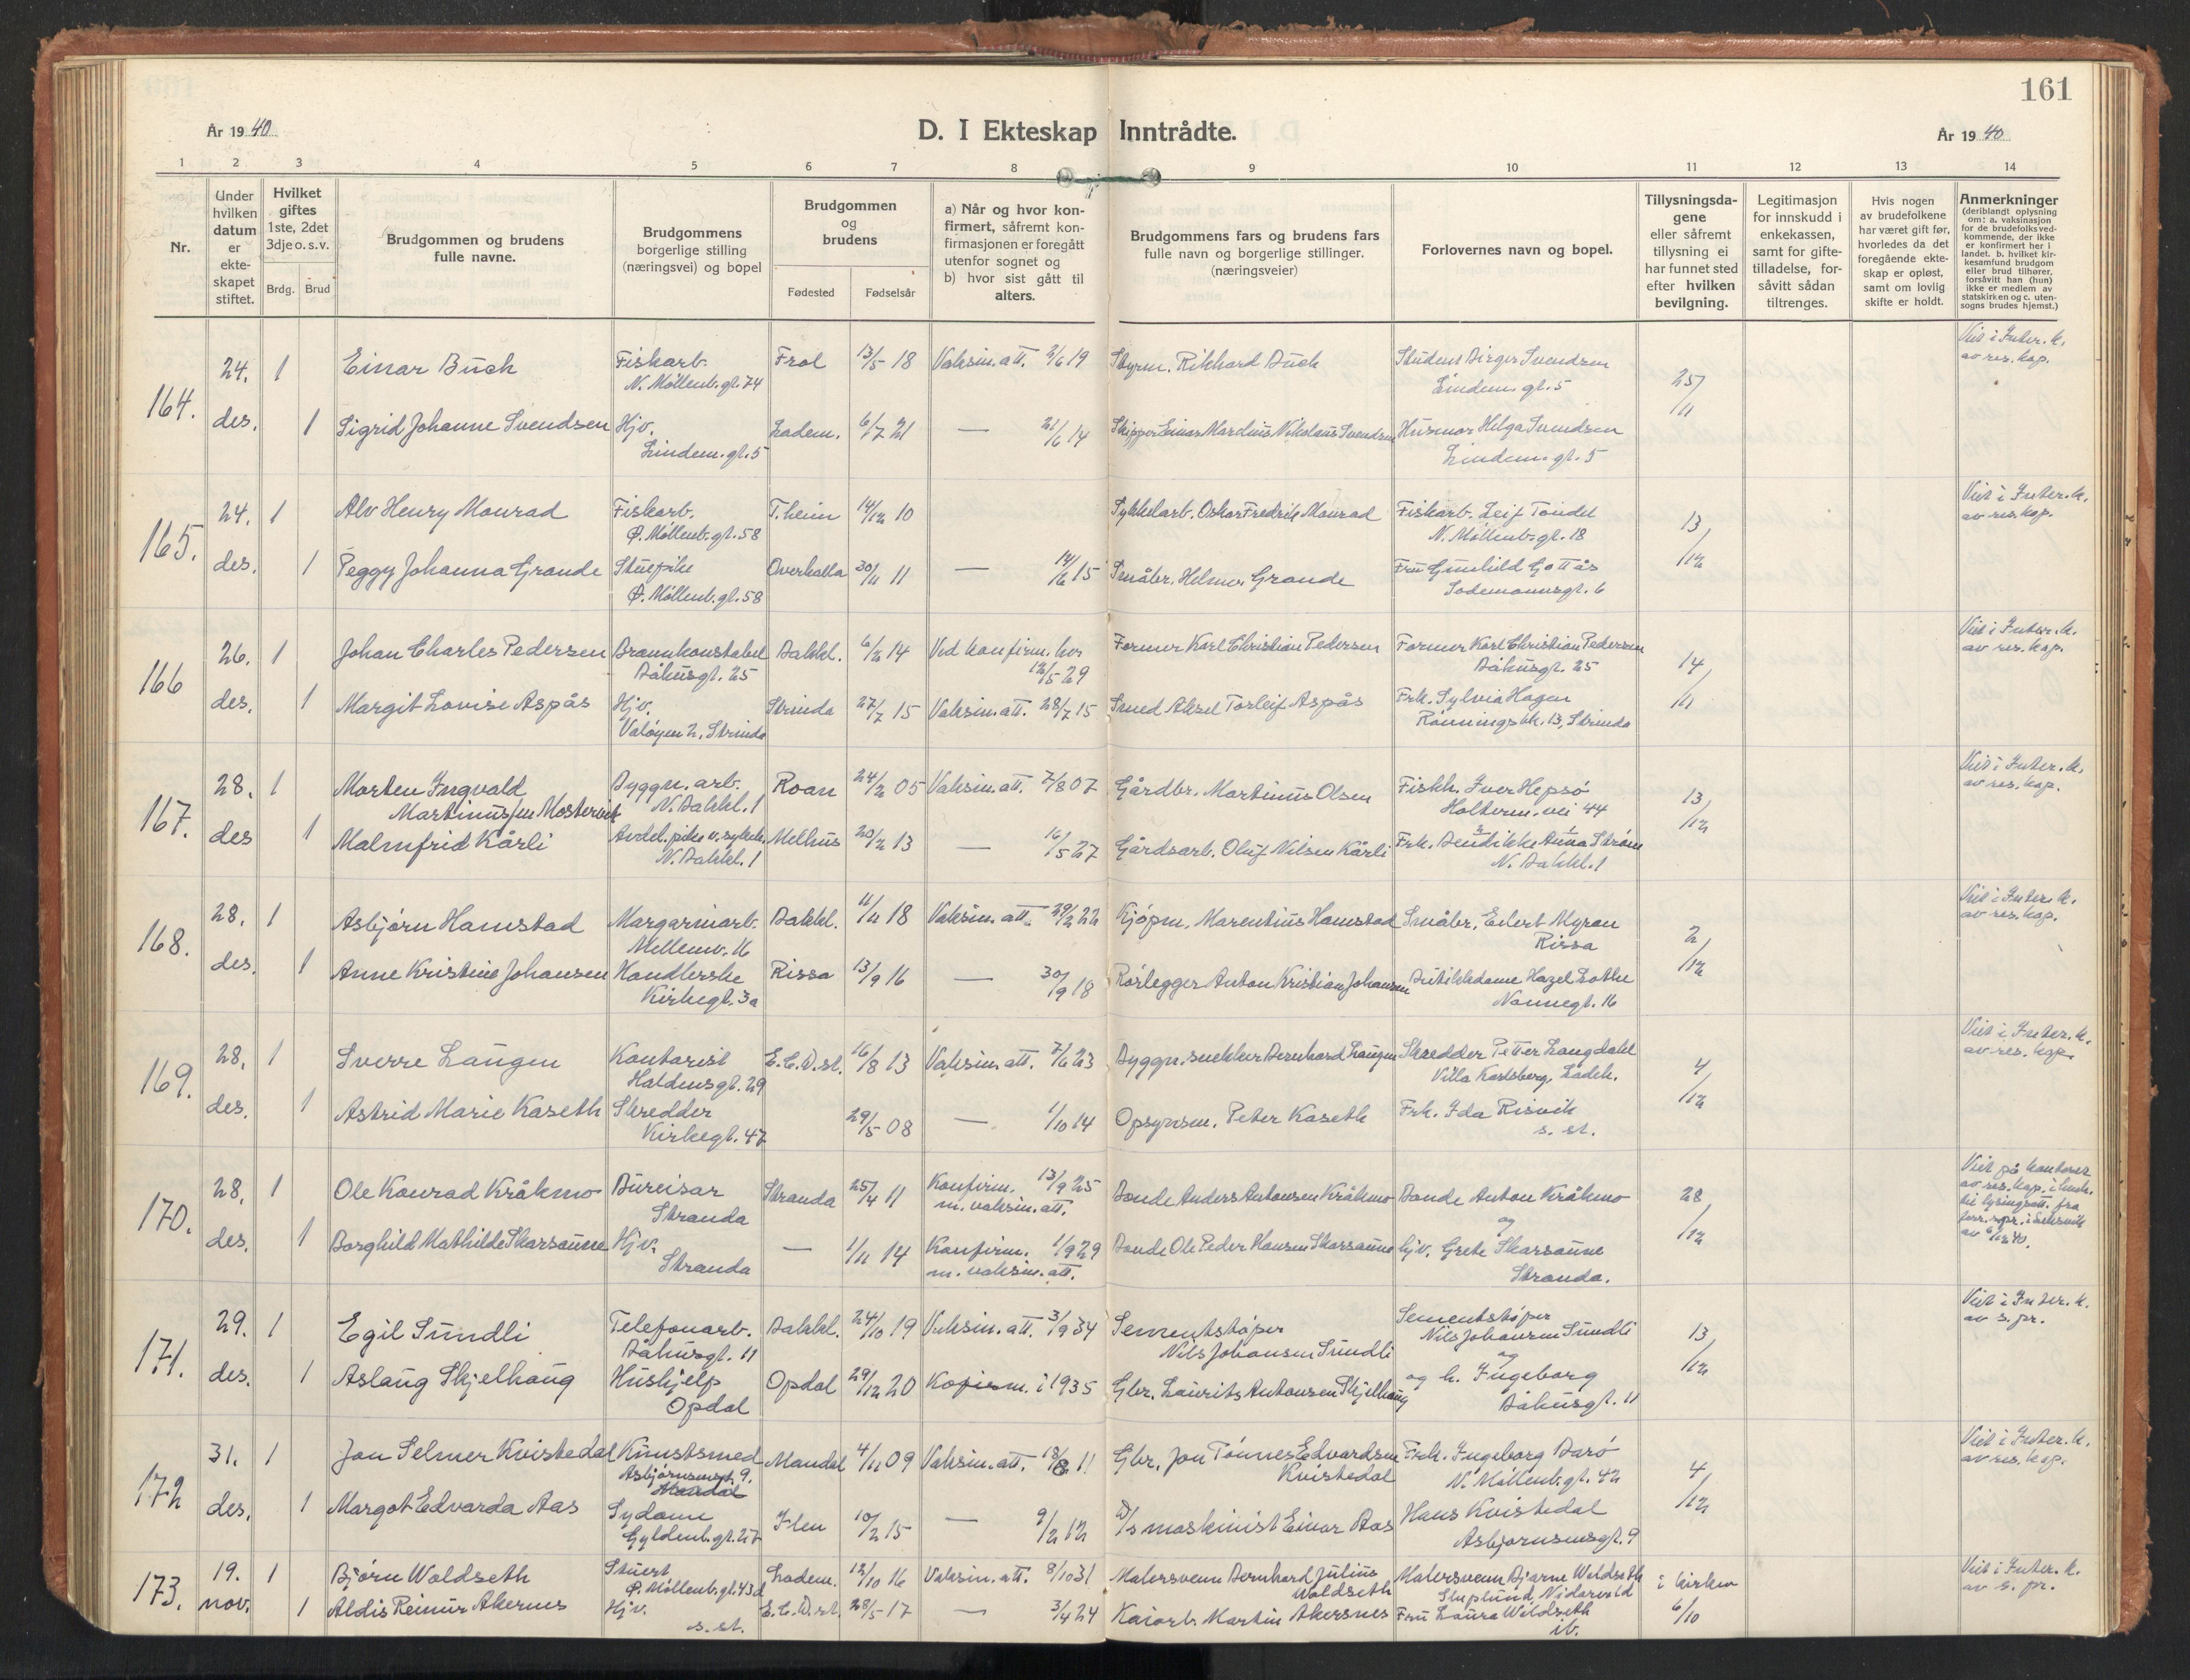 161
År 1940
D. I Ekteskap Inntrådte.
År 1940
1 2 3 4 5 6 7 8 9 10 11 12 13 14
Nr.
Under hvilken datum er ekteskapet stiftet.
Hvilket giftes 1ste, 2det 3dje o. s. v.
Brdg. Brud
Brudgommen og brudens fulle navne.
Brudgommens borgerlige stilling (næringsvei) og bopel
Brudgommen og brudens
Fødested Fødselsår
a) Når og hvor konfirmert, såfremt konfirmasjonen er foregått utenfor sognet og
b) hvor sist gått til alters.
Brudgommens fars og brudens fars fulle navn og borgerlige stillinger. (næringsveier)
Forlovernes navn og bopel.
Tillysningsdagene eller såfremt tillysning ei har funnet sted efter hvilken bevilgning.
Legitimasjon for innskudd i enkekassen, samt for giftetilladelse, forsåvitt sådan tiltrenges.
Hvis nogen av brudefolkene har været gift før, hvorledes da det foregående ekteskap er opløst, samt om lovlig skifte er holdt.
Anmerkninger (deriblandt oplysning om: a. vaksinasjon for de brudefolks vedkommende, der ikke er konfirmert her i landet. b. hvilket kirkesamfund brudgom eller brud tilhører, forsåvitt han (hun) ikke er medlem av statskirken og c. utensogns brudes hjemst.)
164. 24. des. 1 Einar Buch Fiskarb. Frol 13/5 18 Vaksin.att. 2/6 19 Styrm. Rikhard Buch Student Birger Svendsen 25/11 Viet i Inter.k.
N. Møllenb.gt. 74 Lindem.gt. 5 av res.kap.
1 Sigrid Johanne Svendsen Hjv. Ladem. 6/7 21 — 21/6 14 Skipper Einar Mardius Nikolaus Svendsen Husmor Helga Svendsen
Lindem.gt. 5 Lindem.gt. 5
165. 24. des. 1 Alv Henry Monrad Fiskarb. T.heim 14/12 10 Sykkelarb. Oskar Fredrik Monrad Fiskarb. Leif Tondel 13/12 Viet i Inter.k.
Ø. Møllenb.gt. 58 N. Møllenb.gt. 18 av res.kap.
1 Peggy Johanna Grande Stuepike Overhalla 30/11 11 — 14/6 15 Småbr. Helmer Grande Fru Gunhild Gottås
Ø. Møllenb.gt. 58 Sodemannsgt. 6
166 26. des. 1 Johan Charles Pedersen Brannkonstabel Bakkl. 6/2 14 Ved konfirm. her Former Karl Christian Pedersen Former Karl Christian Pedersen 14/11 Viet i Inter.k.
Båhusgt. 25 12/5 29 Båhusgt. 25 av res.kap.
1 Margit Lovise Aspås Hjv. Strinda 27/7 15 Vaksin.att. 28/7 15 Smed Aksel Torleif Aspås Frk. Sylvia Hagen
Valøyen 2, Strinda Rønningsbk. 13, Strinda
167. 28. des 1 Morten Ingvald Byggn.arb. Roan 24/2 05 Vaksin.att. 7/8 07 Gårdbr. Martinus Olsen Fiskh. Iver Hepsø 13/12 Viet i Inter.k.
Martinussen Mostervik N. Bakkl. 1 Holterm.vei 44 av res.kap.
1 Malmfrid Kårli Avdel.pike v. sykeh. Melhus 20/2 13 — 16/5 27 Gårdsarb. Oluf Nilsen Kårli Frk. Bendikke Anna Strøm
N. Bakkl. 1 N. Bakkl. 1
168. 28. des. 1 Asbjørn Hamstad Margarinarb. Bakkl. 11/11 18 Vaksin.att. 29/2 22 Kjøpm. Marentius Hamstad Småbr. Eilert Myran 2/12 Viet i Inter.k.
Mellemv. 16 Rissa av res.kap.
1 Anne Kristine Johansen Handlerske Rissa 13/9 16 — 30/9 18 Rørlegger Anton Kristian Johansen Butikkdame Hazel Lothe
Kirkegt. 3a Nonnegt. 16
169. 28. des. 1 Sverre Langen Kontorist E.C.D.st. 16/8 13 Vaksin.att. 7/6 23 Byggn.snekker Bernhard Langen Skredder Petter Langdahl 4/12 Viet i Inter.k.
Haldensgt. 29 Villa Karlsberg, Ladeh. av res.kap.
1 Astrid Marie Kaseth Skredder 29/5 08 — 1/10 14 Opsynsm. Peter Kaseth Frk. Ida Risvik
Kirkegt. 47 s. st.
170. 28. des. 1 Ole Konrad Kråkmo Bureisar Stranda 25/4 11 Konfirm. 13/9 25 Bonde Anders Antonsen Kråkmo Bonde Anton Kråkmo 28/12 Viet på kontoret
Stranda m. vaksin.att. og av res.kap.
1 Borghild Mathilde Skarsaune Hjv. — 1/11 14 Konfirm. 1/9 29 Bonde Ole Peder Hansen Skarsaune hjv. Grete Skarsaune
Stranda m. vaksin.att. Stranda.
171. 29. des. 1 Egil Sundli Telefonarb. Bakkl. 24/10 19 Vaksin.att. 3/9 34 Sementstøper Sementstøper 13/12 Viet i Inter.k.
Båhusgt. 11 Nils Johansen Sundli Nils Johansen Sundli av s.pr.
og
1 Aslaug Skjelhaug Hushjelp Opdal 29/12 20 Kofirm. i 1935 Gbr. Laurits Antonsen Skjelhaug og h. Ingeborg
Opdal Båhusgt. 11
172 31. des. 1 Jon Selmer Kvistedal Kunstsmed Mandal 4/11 09 Vaksin.att. 18/8 11 Gbr. Jon Tønnes Edvardsen Frk. Ingeborg Barø 4/12 Viet i Inter.k.
Asbjørnsensgt. 9. Kvistedal N. Møllenb.gt. 42 av res.kap.
Mandal
1 Margot Edvarda Aas Sydame Ilen 10/2 15 — 9/2 12 D/s maskinist Einar Aas Hans Kvistedal
Gyldenb.gt. 27 Asbjørnsensgt. 9
173. 19. nov. 1 Bjørn Woldseth Stuert Ladem. 12/10 16 Vaksin.att. 8/10 31 Malersvenn Bernhard Julius Malersvenn Bjarne Woldseth i kirken Viet i Inter.k.
Ø. Møllenb.gt. 43d Woldseth Sluplund, Nidarvold 6/10 av s. pr.
1 Aldis Reinur Akernes Hjv. E.C.D.st. 28/5 17 — 3/4 24 Kaiarb. Martin Akersnes Fru Laura Woldseth
s. st. ib.